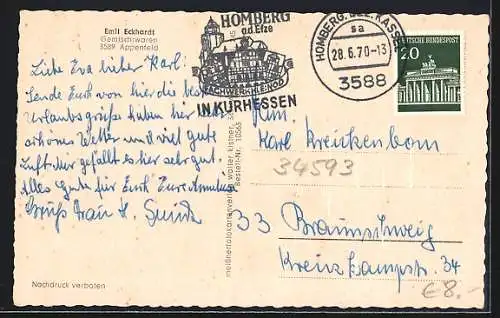 Emil Eckhardt
Gemischtwaren
3589 Appenfeld
HOMBERG
a.d. Efze
FACHWERK-KLEINOD
IN KURHESSEN
HOMBERG, BEZ. KASSEL
sa
28.6.70-13
3588
DEUTSCHE BUNDESPOST
20
Liebe Eva lieber Karl!
Sende Euch von hier die besten
Urlaubsgrüße haben hier sehr
schönes Wetter und viel gute
Luft der gefällt es hier sehr gut.
Alles Gute für Euch Eure
Gruß Frau H.
Fam.
Karl Kreickenbom
34593
33 Braunschweig
Kreuzkampstr. 34
€8.-
Bestell-Nr. 10565
Nachdruck verboten